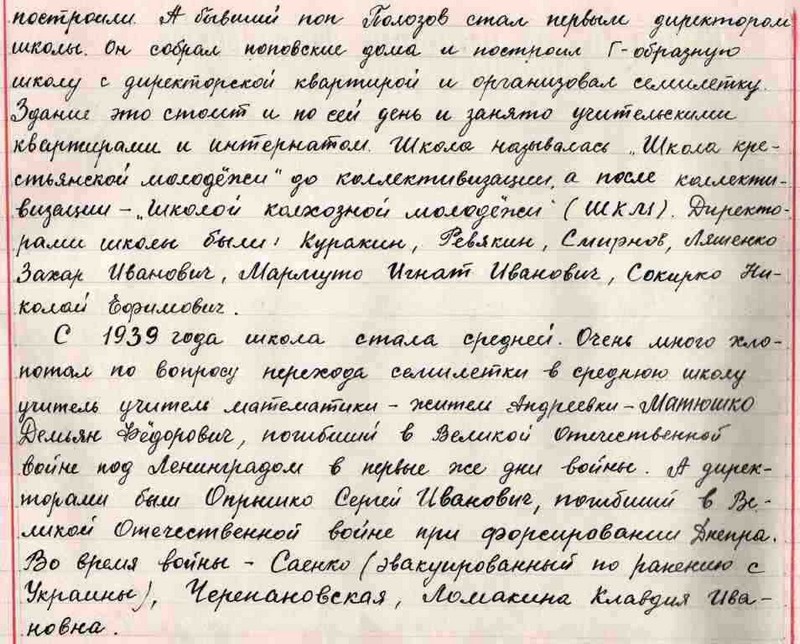 построили. А бывший поп Полозов стал первым директором
школы. Он собрал поповские дома и построил Г-образную
школу с директорской квартирой и организовал семилетку.
Здание это стоит и по сей день и занято учительскими
квартирами и интернатом. Школа называлась „Школа кре-
стьянской молодёжи" до коллективизации, а после коллекти-
визации – „Школой колхозной молодёжи" (ШКМ). Директо-
рами школы были: Куракин, Ревякин, Смирнов, Ляшенко
Захар Иванович, Мармуто Игнат Иванович, Сокирко Ни-
колай Ефимович.
С 1939 года школа стала средней. Очень много хло-
потал по вопросу перехода семилетки в среднюю школу
учитель учитель математики – житель Андреевки – Матюшко
Демьян Фёдорович, погибший в Великой Отечественной
войне под Ленинградом в первые же дни войны. А дирек-
торами были Опрышко Сергей Иванович, погибший в Ве-
ликой Отечественной войне при форсировании Днепра.
Во время войны – Саенко (эвакуированный по ранению с
Украины), Черепановская, Ломакина Клавдия Ива-
новна.